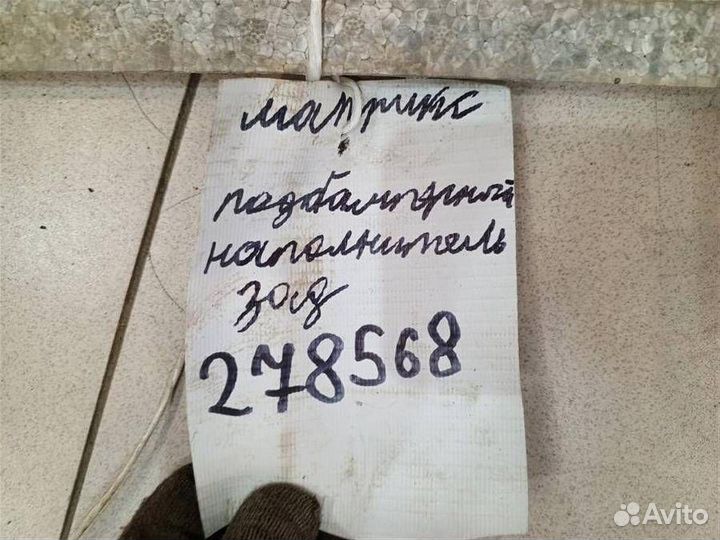 матрикс
подбамперный
наполнитель
зад
278568
Avito